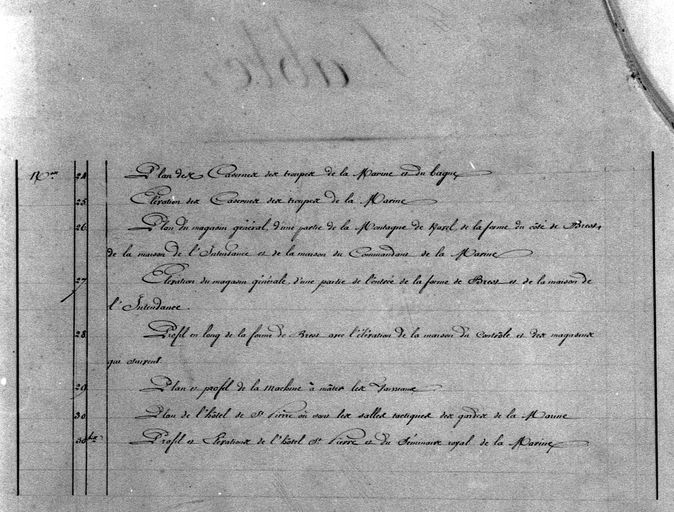 N.os 24 Plan des Casernes des troupes de la Marine et du bagne
25 Elévation des Casernes des troupes de la Marine
26 Plan du magasin général, d'une partie de la Montagne de Kavel, de la forme du côté de Brest,
de la maison de l'Intendance et de la maison du Commandant de la Marine
27 Elévation du magasin générale, d'une partie de l'entrée de la forme de Brest et de la maison de
l'Intendance.
28 Profil en long de la forme de Brest avec l'élévation de la maison du Contrôle et des magasins
qui suivent.
29 Plan et profil de la machine à mâter les Vaisseaux
30 Plan de l'hôtel de St Pierre où sont les salles tactiques des gardes de la Marine
30 bis Profil et Elévations de l'hôtel St Pierre et du Séminaire royal de la Marine